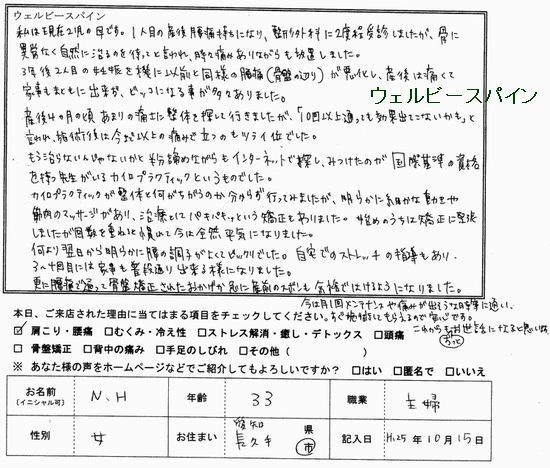 ウェルビースパイン
私は現在2児の母です。1人目の産後腰痛持ちになり、整形外科に2度程受診しましたが、骨に
異常なく自然に治るのを待ってと言われ、時々痛みありながらも放置しました。
3年後2人目の妊娠を機に以前と同様の腰痛(骨盤の辺り)が悪化し、産後は痛くて
家事もまともに出来ず、ビッコになる事が多々ありました。
ウェルビースパイン
産後4ヶ月の頃あまりの痛さに整体を探して行きましたが、「10回以上通っても効果出てこないかも」と
言われ、施術後は今まで以上の痛みで立つのもツライ位でした。
もう治らないんじゃないかと半分諦めながらもインターネットで探し、みつけたのが国際基準の資格
を持つ先生がいるカイロプラクティックというものでした。
カイロプラクティックが整体と何がちがうのか分からず行ってみましたが、明らかに細かな動きや
筋肉のマッサージがあり、治療としてバキバキッという矯正もありました。始めのうちは矯正に緊張
しましたが回数を重ねると慣れて今は全然平気になりました。
何より翌日から明らかに腰の調子がよくてビックリでした。自宅でのストレッチの指導もあり、
3〜4回目には家事も普段通り出来る様になりました。
更に腰痛で通って骨盤矯正されたおかげか急に産前のズボンも余裕ではけるようになりました。
今は月1回メンテナンスや痛みが出そうな日を事に通い、
すぐ施術してもらえるので安心です。
これからもずっとお世話になると思います。
本日、ご来店された理由に当てはまる項目をチェックしてください。
☑肩こり・腰痛 □むくみ・冷え性 □ストレス解消・癒し・デトックス □頭痛
□骨盤矯正 □背中の痛み □手足のしびれ □その他( )
※ あなた様の声をホームページなどでご紹介してもよろしいですか? □はい □匿名で □いいえ
お名前 (イニシャル可) N.H 年齢 33 職業 主婦
性別 女 お住まい 愛知 県 長久手 市 記入日 H.25年10月15日